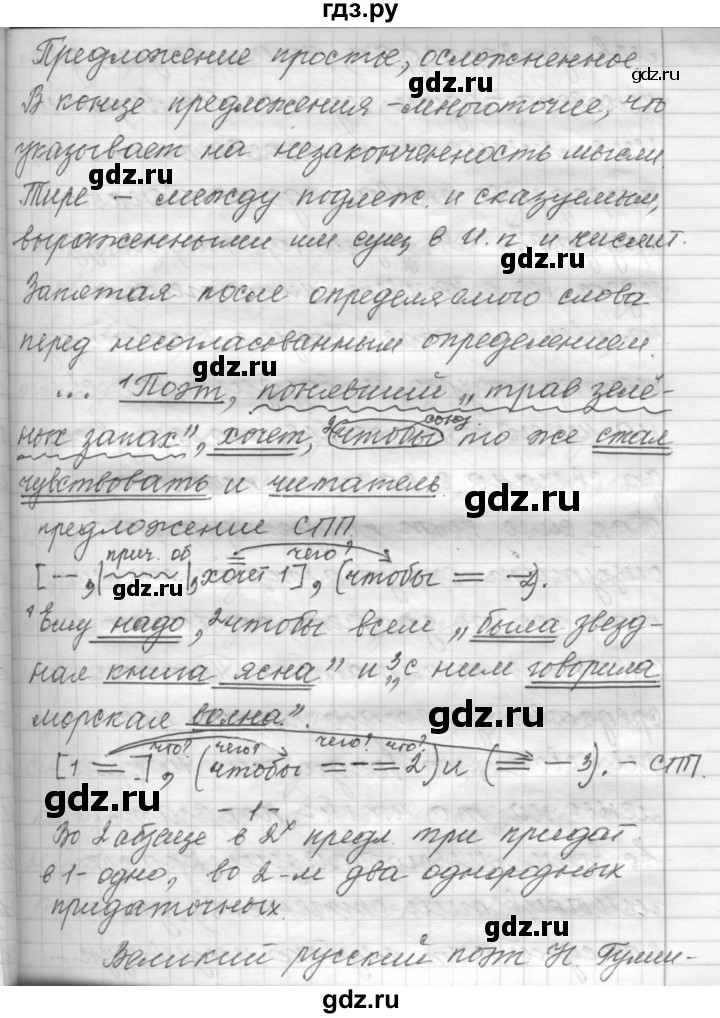 гдз.ру
Предложение простое, осложненное
gdz.ru
В конце предложения - многоточие, что
указывает на незаконченность мысли.
gdz.ru
Тире - между подлеж. и сказуемым,
выраженными им. сущ в И.п. и числит.
gdz.ru
Запятая после определяемого слова
перед несогласованным определением.
gdz.ru
... ¹Поэт, понявший „трав зелё-
союз
ных запах", хочет, ²чтобы то же стал
чувствовать и читатель.
gdz.ru
предложение СПП.
прич. об чего?
[--, | |, хочет 1], (чтобы = -2).
gdz.ru
¹Ему надо, ²чтобы всем „была звезд-
ная книга ясна" и ³„с ним говорила
морская волна".
gdz.ru
что? чего? чего? что?
[1 = ], (чтобы = - = 2) и (= - 3). - СПП.
gdz.ru
-1-
Во 2 абзаце в 2х предл. три придат.
в 1- одно, во 2-м два однородных
придаточных.
gdz.ru
Великий русский поэт Н. Гуми-
gdz.ru